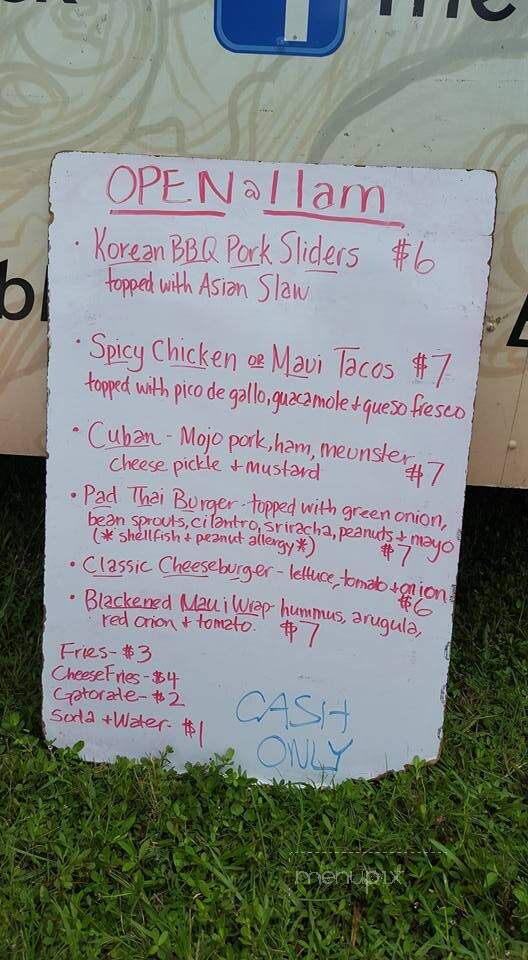 the
OPEN @ 11am
• Korean BBQ Pork Sliders $6
topped with Asian Slaw
• Spicy Chicken OR Maui Tacos $7
topped with pico de gallo, guacamole + queso fresco
• Cuban - Mojo pork, ham, meunster
cheese pickle + mustard $7
• Pad Thai Burger - topped with green onion,
bean sprouts, cilantro, sriracha, peanuts + mayo
(* shellfish + peanut allergy *) $7
• Classic Cheeseburger - lettuce, tomato + onion
$6
• Blackened Maui Wrap hummus, arugula,
red onion + tomato. $7
Fries - $3
Cheese Fries - $4
Gatorate - $2
Soda + Water - $1
CASH
ONLY
menupix